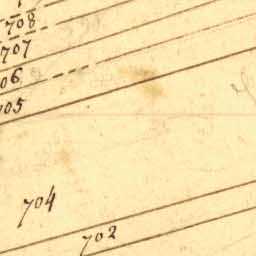 708
707
706
705
704
702